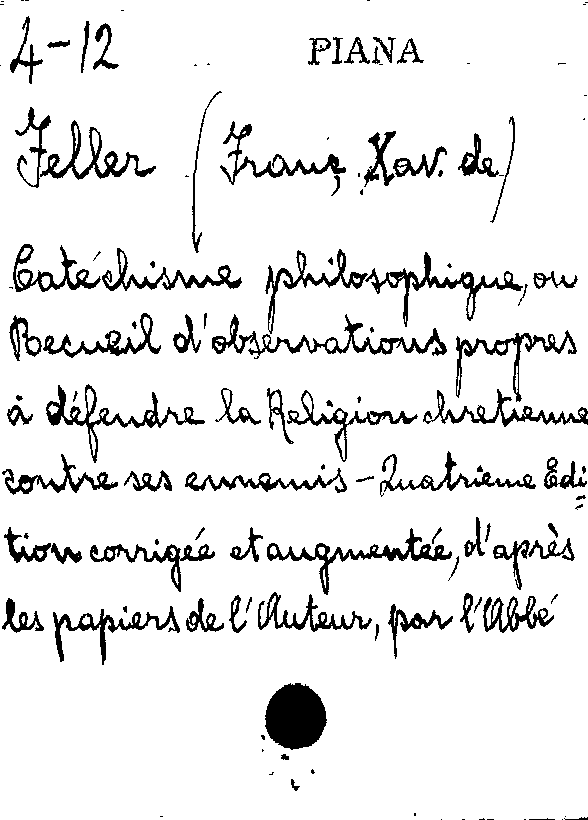 4-12 PIANA
Feller (Franç. Xav. de)
Catéchisme philosophique, ou
Recueil d'observations propres
à défendre la Religion chretienne
contre ses ennemis - Quatrieme Edi=
tion corrigée et augmentée, d'après
les papiers de l'Auteur, par l'Abbé